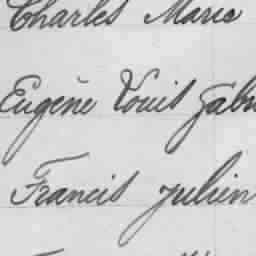 Charles Marie
Eugène Louis Gabr
Francis Julien